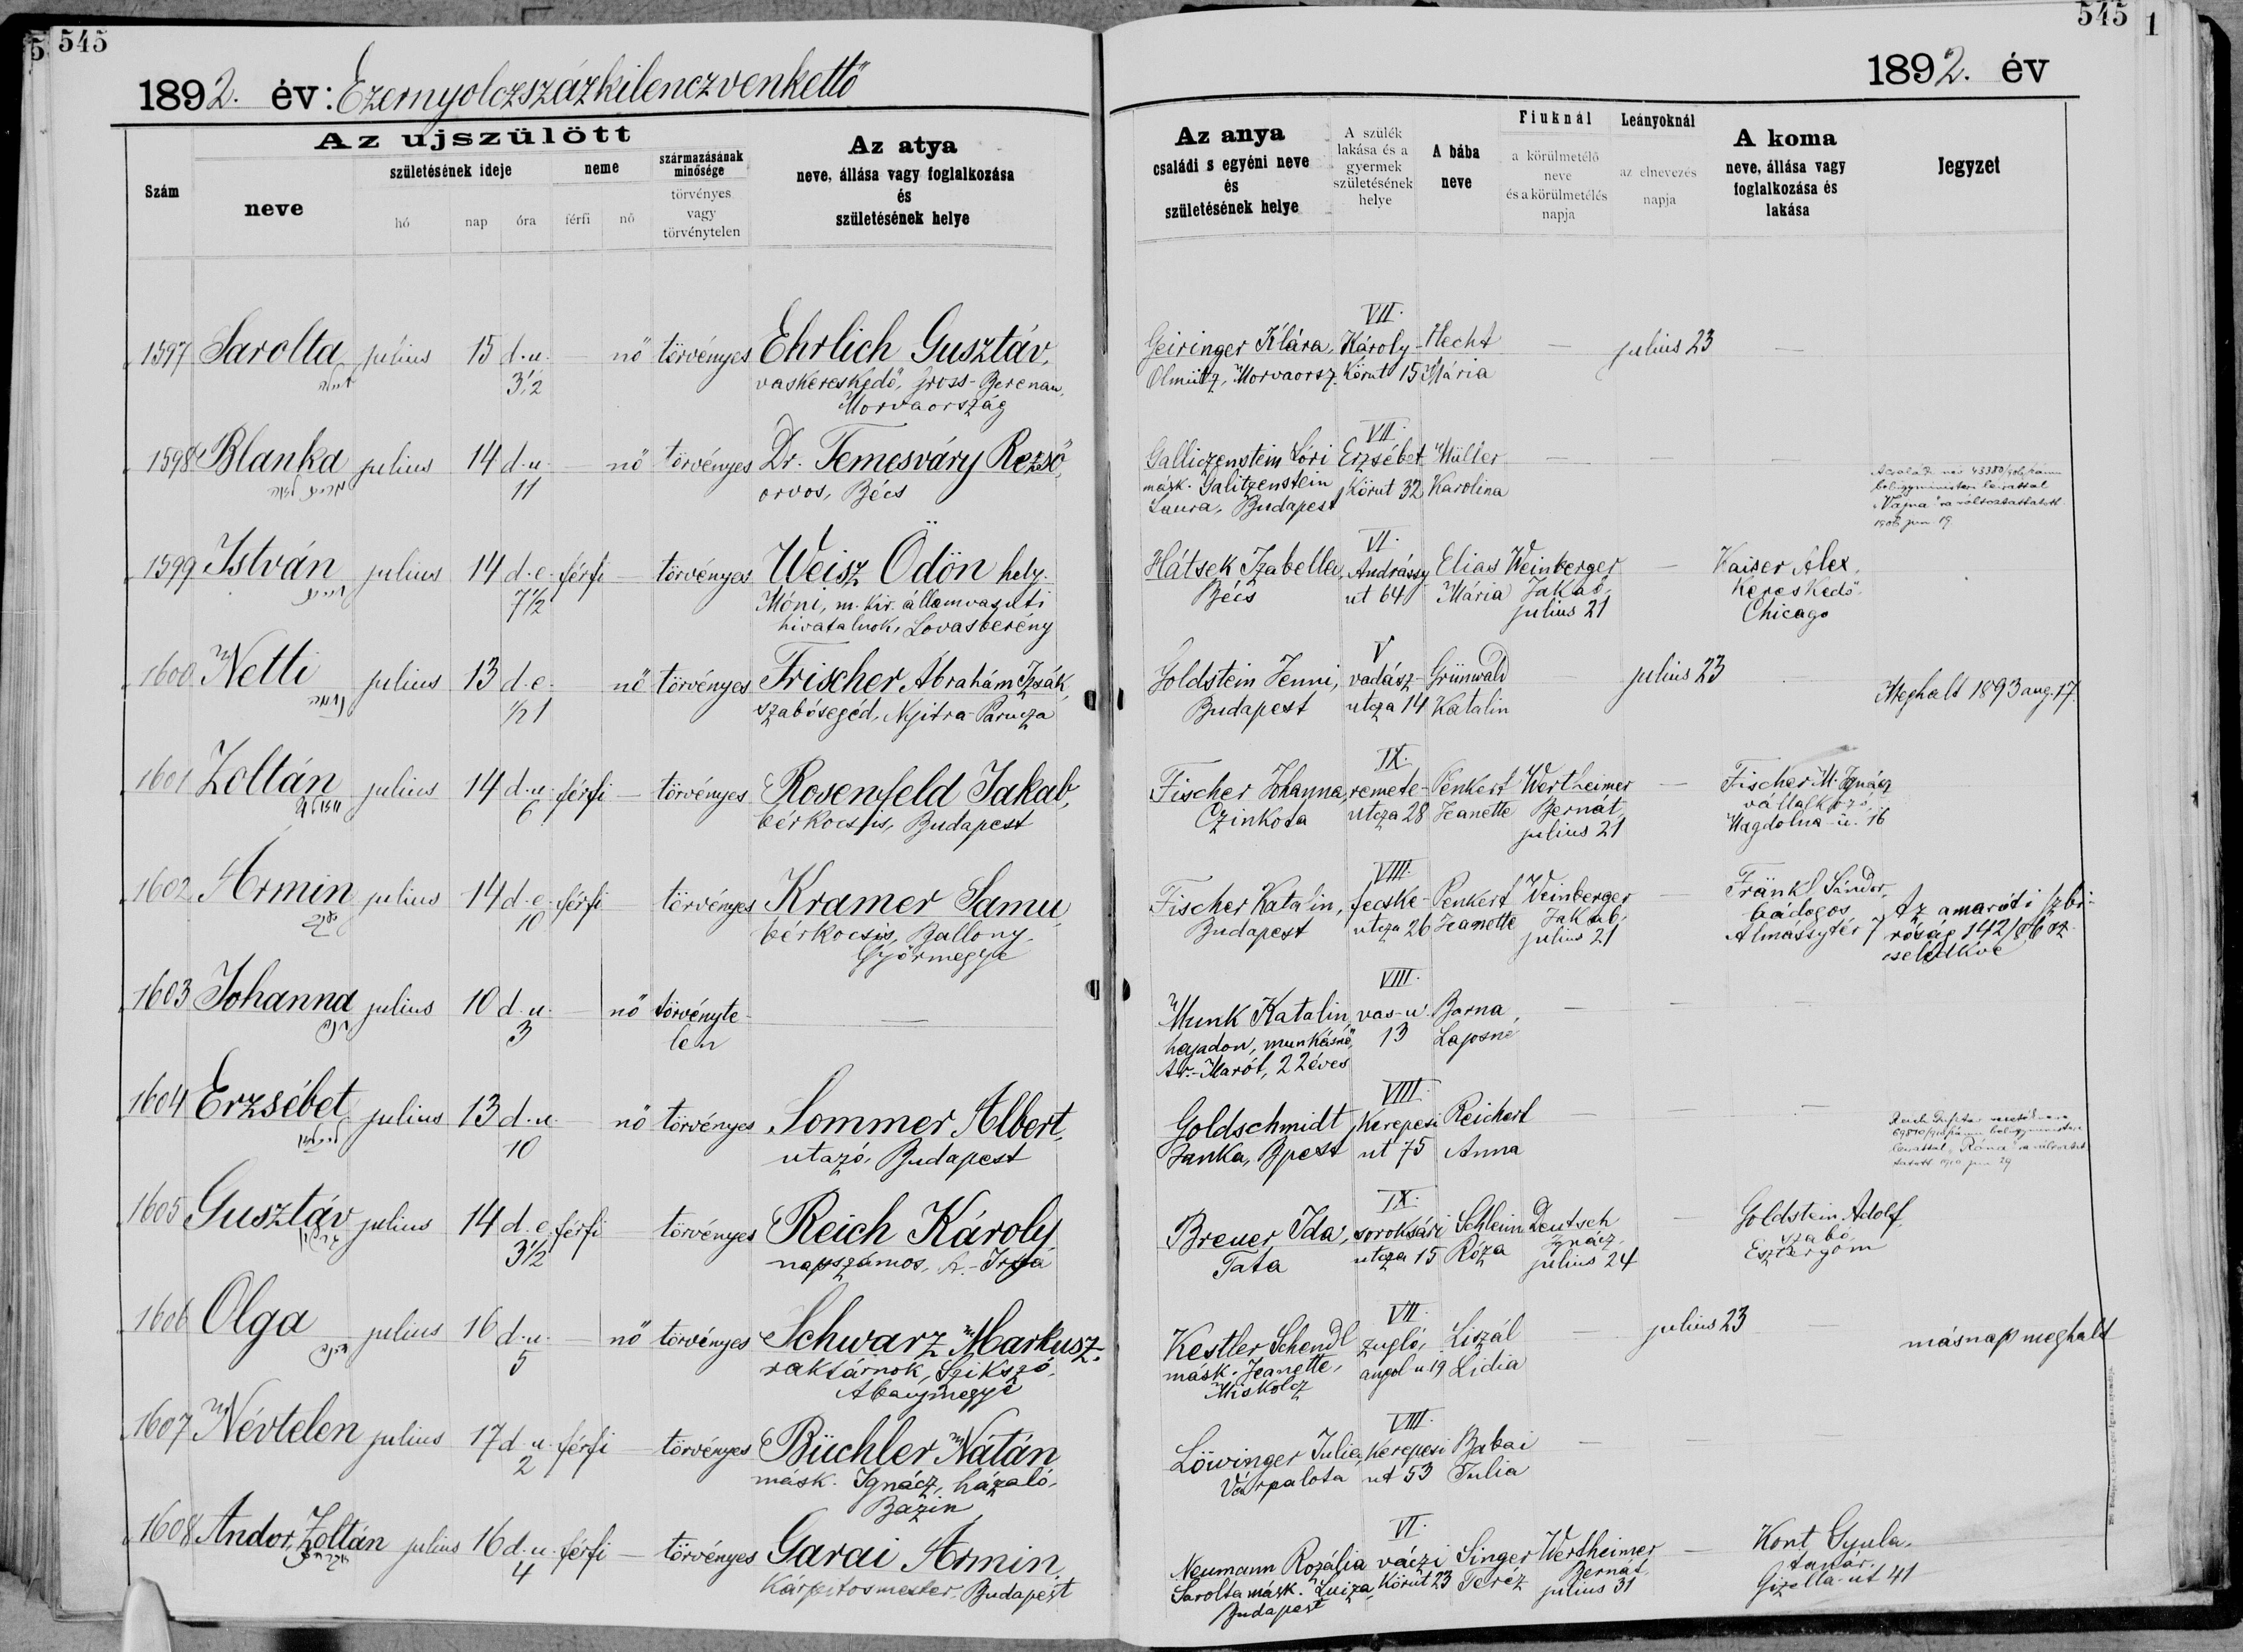 545
1892. év: Ezernyolczszázkilenczvenkettő
Az ujszülött
Szám
neve
születésének ideje
hó
nap
óra
neme
férfi
nő
származásának minősége
törvényes vagy törvénytelen
Az atya
neve, állása vagy foglalkozása
és
születésének helye
545
1
1892. év
Az anya
családi s egyéni neve
és
születésének helye
A szülék
lakása és a
gyermek
születésének
helye
A bába
neve
Fiuknál
a körülmetélő
neve
és a körülmetélés
napja
Leányoknál
az elnevezés
napja
A koma
neve, állása vagy
foglalkozása és
lakása
Jegyzet
1597 Sarolta julius 15 d.u. — nő törvényes Ehrlich Gusztáv,
3 1/2 vaskereskedő, Gross-Berenau,
Morvaország
VII.
Geiringer Klára, Károly- Hecht — julius 23 —
Olmütz, Morvaorsz. Körut 15 Mária
1598 Blanka julius 14 d.u. — nő törvényes Dr. Temesváry Rezső,
11 orvos, Bécs
VII.
Galliczenstein Lóri Erzsébet Müller — — —
másk. Galitzenstein Körut 32 Karolina
Laura, Budapest
1599 István julius 14 d.e. férfi — törvényes Weisz Ödön hely.
7 1/2 Móni, m. kir. államvasuti
hivatalnok, Lovasberény
VI.
Hátsek Izabella, Andrássy Elias Weinberger — Kaiser Alex,
Bécs ut 64 Mária Jakab, Kereskedő
julius 21 Chicago
1600 Netti julius 13 d.e. nő törvényes Frischer Ábrahám Izsák,
1/2 1 szabósegéd, Nyitra-Parucza
V
Goldstein Jenni, vadász- Grünwald julius 23 Meghalt 1893 aug. 17.
Budapest utcza 14 Katalin
1601 Zoltán julius 14 d.u. férfi — törvényes Rosenfeld Jakab,
6 bérkocsis, Budapest
IX.
Fischer Johanna, remete- Penkert Wertheimer — Fischer M. Ignácz
Czinkota utcza 28 Jeanette Bernát, vállalkozó,
julius 21 Magdolna-u. 16
1602 Armin julius 14 d.e. férfi — törvényes Kramer Samu,
10 bérkocsis, Ballony,
Győrmegye
VIII.
Fischer Katalin, fecske- Penkert Weinberger — Fränkl Sándor,
Budapest utcza 26 Jeanette Jakab, bádogos,
julius 21 Almássytér
1603 Johanna julius 10 d.u. — nő törvényte-
3 len —
VIII.
Munk Katalin vas-u. Barna, — — —
hajadon, munkásnő, 13 Lajosné
Ar.-Marót, 22 éves
1604 Erzsébet julius 13 d.u. nő törvényes Sommer Albert,
10 utazó, Budapest
VIII.
Goldschmidt Kerepesi Reichert — —
Janka, Bpest ut 75 Anna
1605 Gusztáv julius 14 d.e. férfi — törvényes Reich Károly
3 1/2 napszámos,
IX.
Breuer Ida, soroksári Schlein Deutsch — Goldstein Adolf,
Tata utcza 15 Róza Ignácz, szabó,
julius 24 Esztergom
1606 Olga julius 16 d.u. — nő törvényes Schwarz Markusz,
5 raktárnok, Szikszó,
Abaujmegye
VII.
Kestler Schendl zugló, Liszál — julius 23 — másnap meghalt
másk. Jeanette, angol u 19 Lidia
Miskolcz
1607 Névtelen julius 17 d.u. férfi — törvényes Büchler Nátán
2 másk. Ignácz, házaló,
Bazin
VIII.
Löwinger Julia, Kerepesi Babai — — —
Várpalota ut 53 Julia
1608 Andor, Zoltán julius 16 d.u. férfi — törvényes Garai Armin,
4 Kárpitosmester, Budapest
VI.
Neumann Rozália váczi Singer Wertheimer — Kont Gyula,
Sarolta másk. Luiza, Körut 23 Teréz Bernát, tanár,
Budapest julius 31 Gizella-ut 41